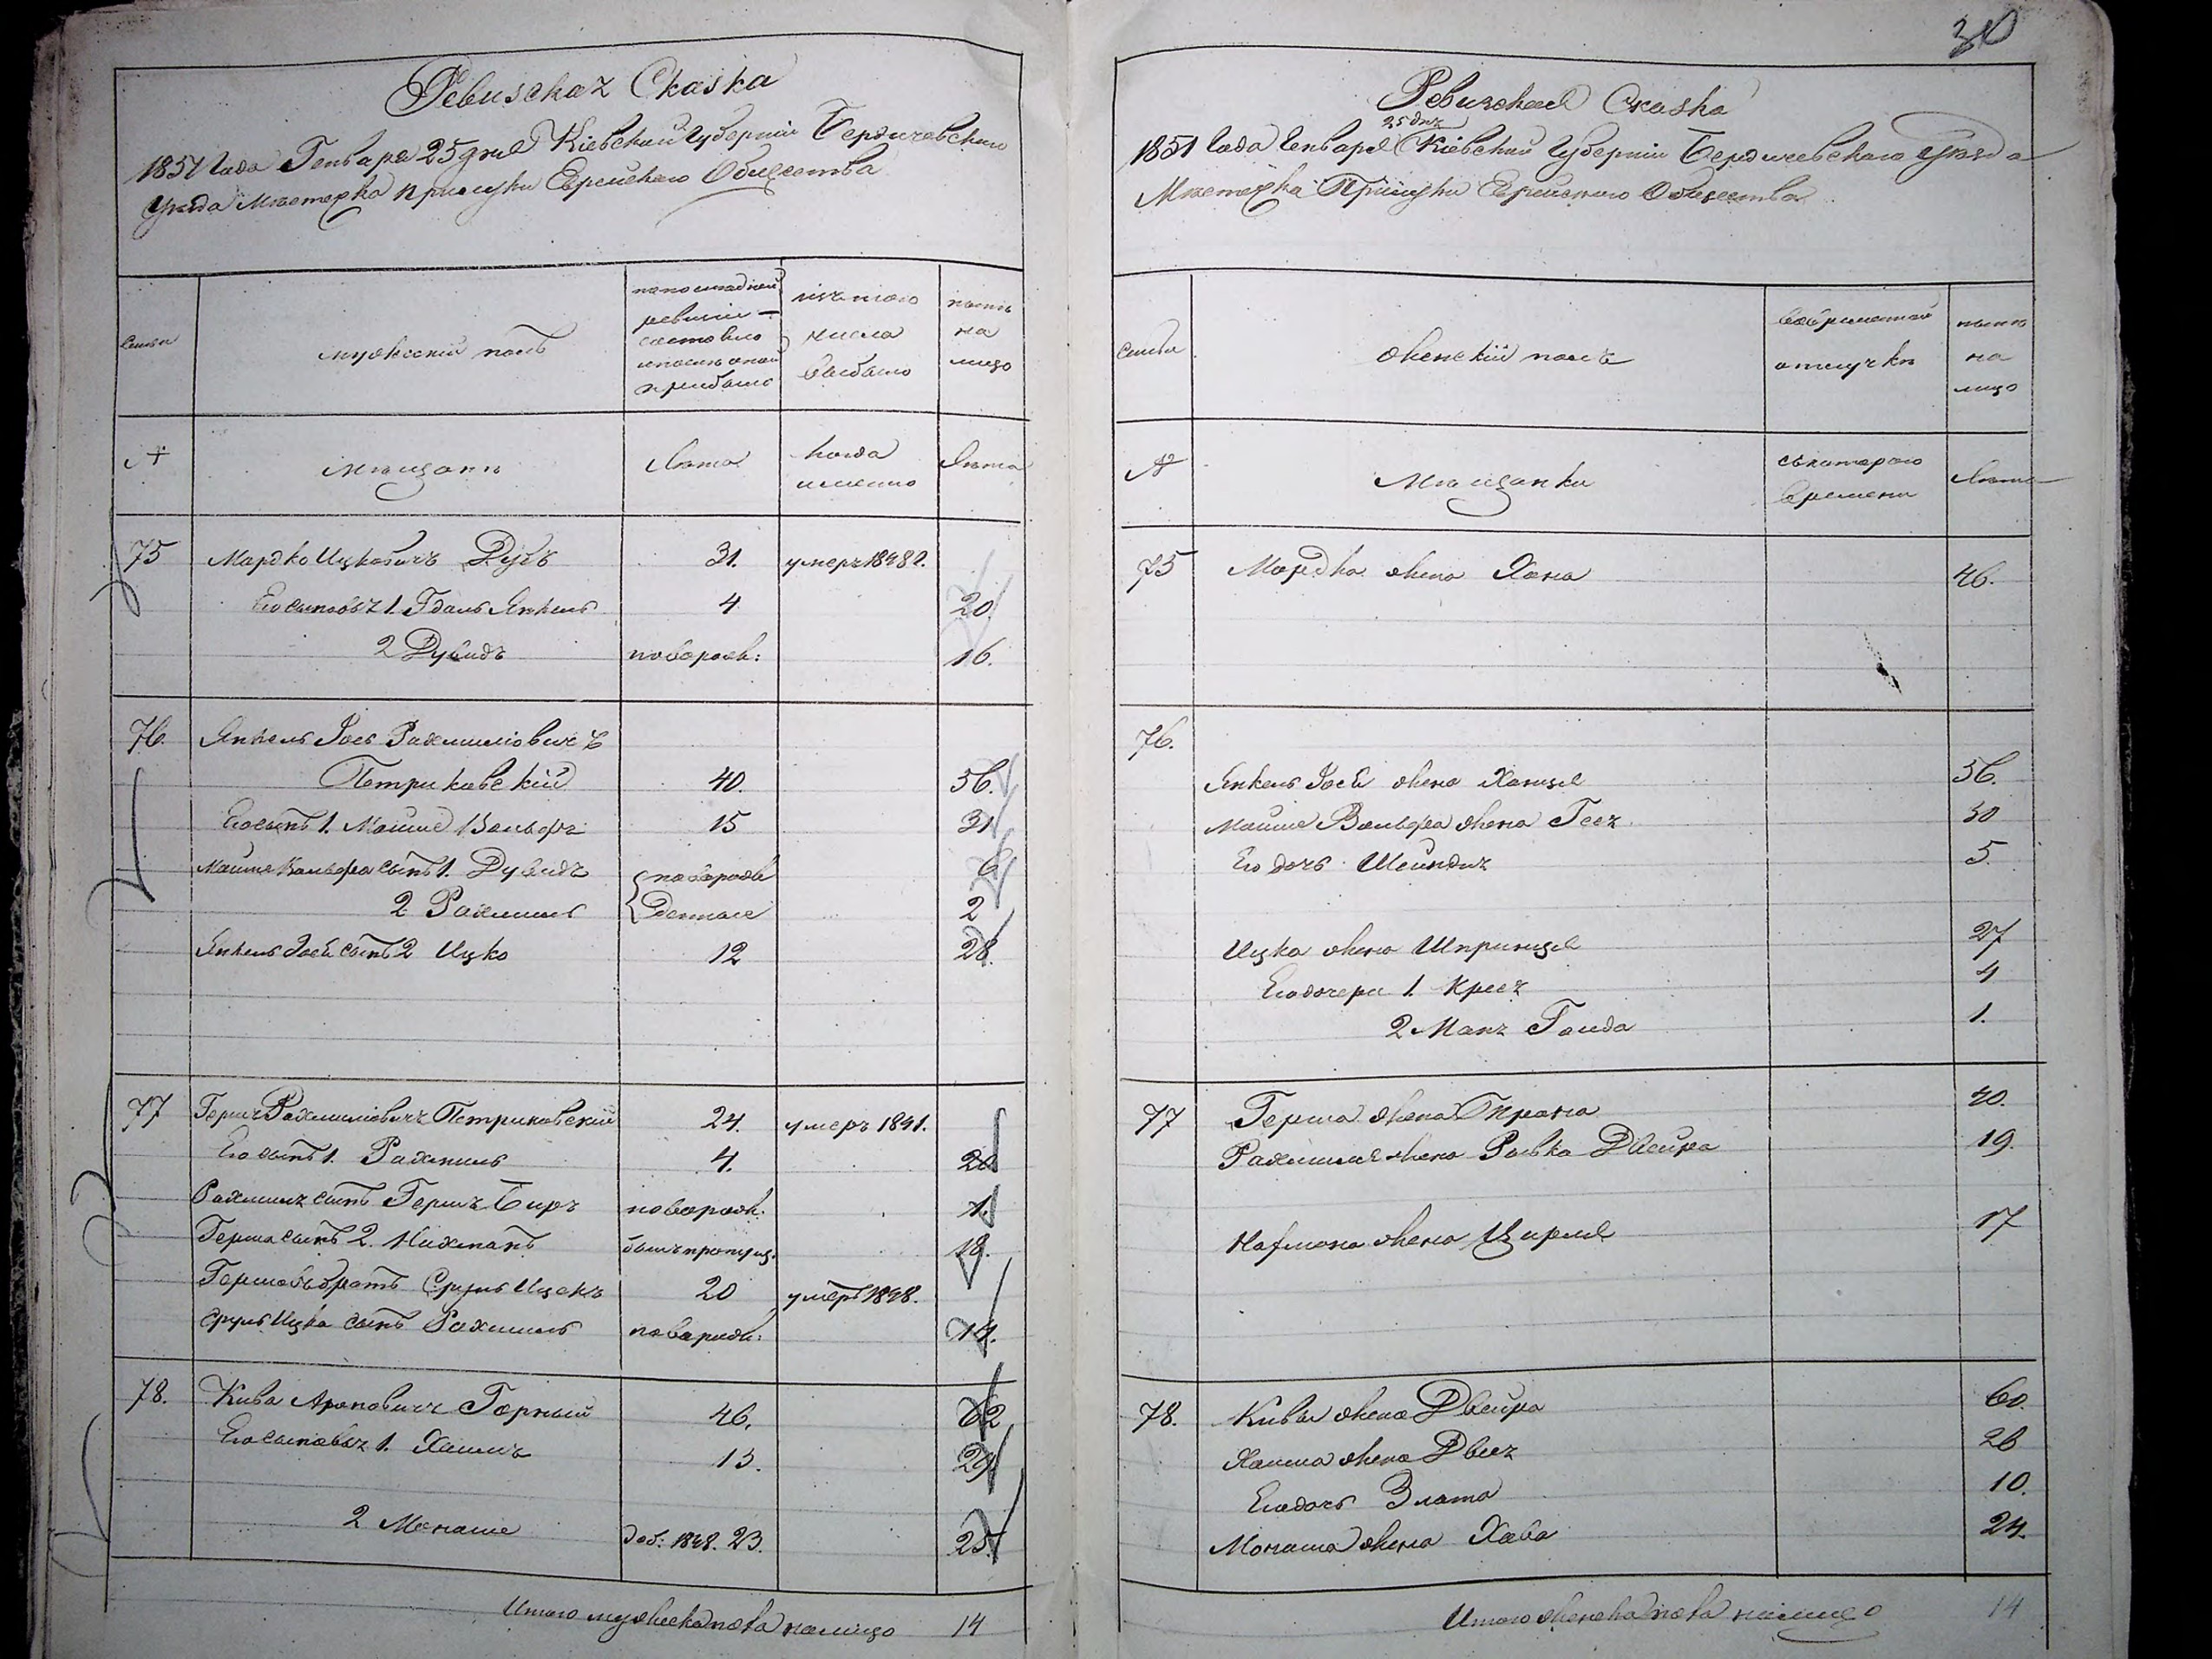 30
Ревизская Сказка
1851 Года Генваря 25 дня Кіевской Губерніи Бердичевскаго
Уезда Мѣстечка Прилуки Еврейскаго Общества
Семьи
мужескій полъ
по последней
ревизіи
состояло
и после оной
прибыло
изъ того
числа
выбыло
нынѣ
на
лицо
№
Мѣщанѣ
Лѣта
когда
именно
Лѣта
75 Мардко Ицковичъ Дубъ 31. умеръ 1848 г.
Его сыновья 1. Гдаль Янкель 4 20
2 Дувидъ новорож: 16.
76. Янкель Іось Рахмиліовичъ
Петриковскій 40. 56.
Его сынъ 1. Мошше Вольфъ 15 31
Мошше Вольфа сынъ 1. Дувидъ новорож 6
2 Рахмиль денные 2
Янкель Іося сынъ 2 Ицко 12 28.
77 Гершъ Рахмиліовичъ Петриковскій 24. умеръ 1841.
Его сынъ 1. Рахмиль 4. 20
Рахмиля сынъ Гершъ Беръ новорож. 1.
Герша сынъ 2. Нахманъ былъ пропущ. 18.
Гершовъ братъ Сруль Ицекъ 20 умеръ 1848.
Сруль Ицка сынъ Рахмиль новорож: 14.
78. Кива Ароновичъ Горный 46. 62
Его сыновья 1. Хаимъ 13. 29
2 Монаше доб: 1848. 23. 25.
Итого мужеска пола налицо 14
Ревизская Сказка
25 дня
1851 Года Генваря Кіевской Губерніи Бердичевскаго Уезда
Мѣстечка Прилуки Еврейскаго Общества
Семьи
женскій полъ
во временной
отлучкѣ
нынѣ
на
лицо
№
Мѣщанки
съ котораго
времени
Лѣта
75 Мордка жена Хана 46.
76.
Янкель Іося жена Ханця 56.
Мошше Вольфа жена Гося 30
Его дочь Шейндля 5.
Ицка жена Шпринця 27
Его дочери 1. Крейз 4
2 Маня Голда 1.
77 Герша жена Прана 40.
Рахмиля жена Ривка Двейра 19.
Нахмана жена Цирля 17
78. Кивы жена Двейра 60.
Хаима жена Двося 26
Его дочь Злата 10.
Монаша жена Хава 24.
Итого женска пола налицо 14